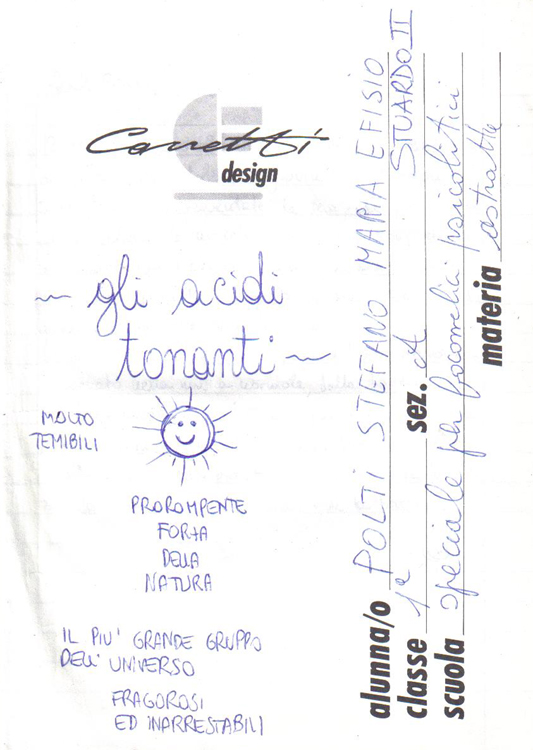 Carretti
design
~ gli acidi
tonanti ~
MOLTO
TEMIBILI
PROROMPENTE
FORZA
DELLA
NATURA
IL PIU' GRANDE GRUPPO
DELL'UNIVERSO
FRAGOROSI
ED INARRESTABILI
alunna/o POLTI STEFANO MARIA EFISIO
STUARDO II
classe 1ª sez. A
scuola speciale per focomelici psicolitici
materia astratta